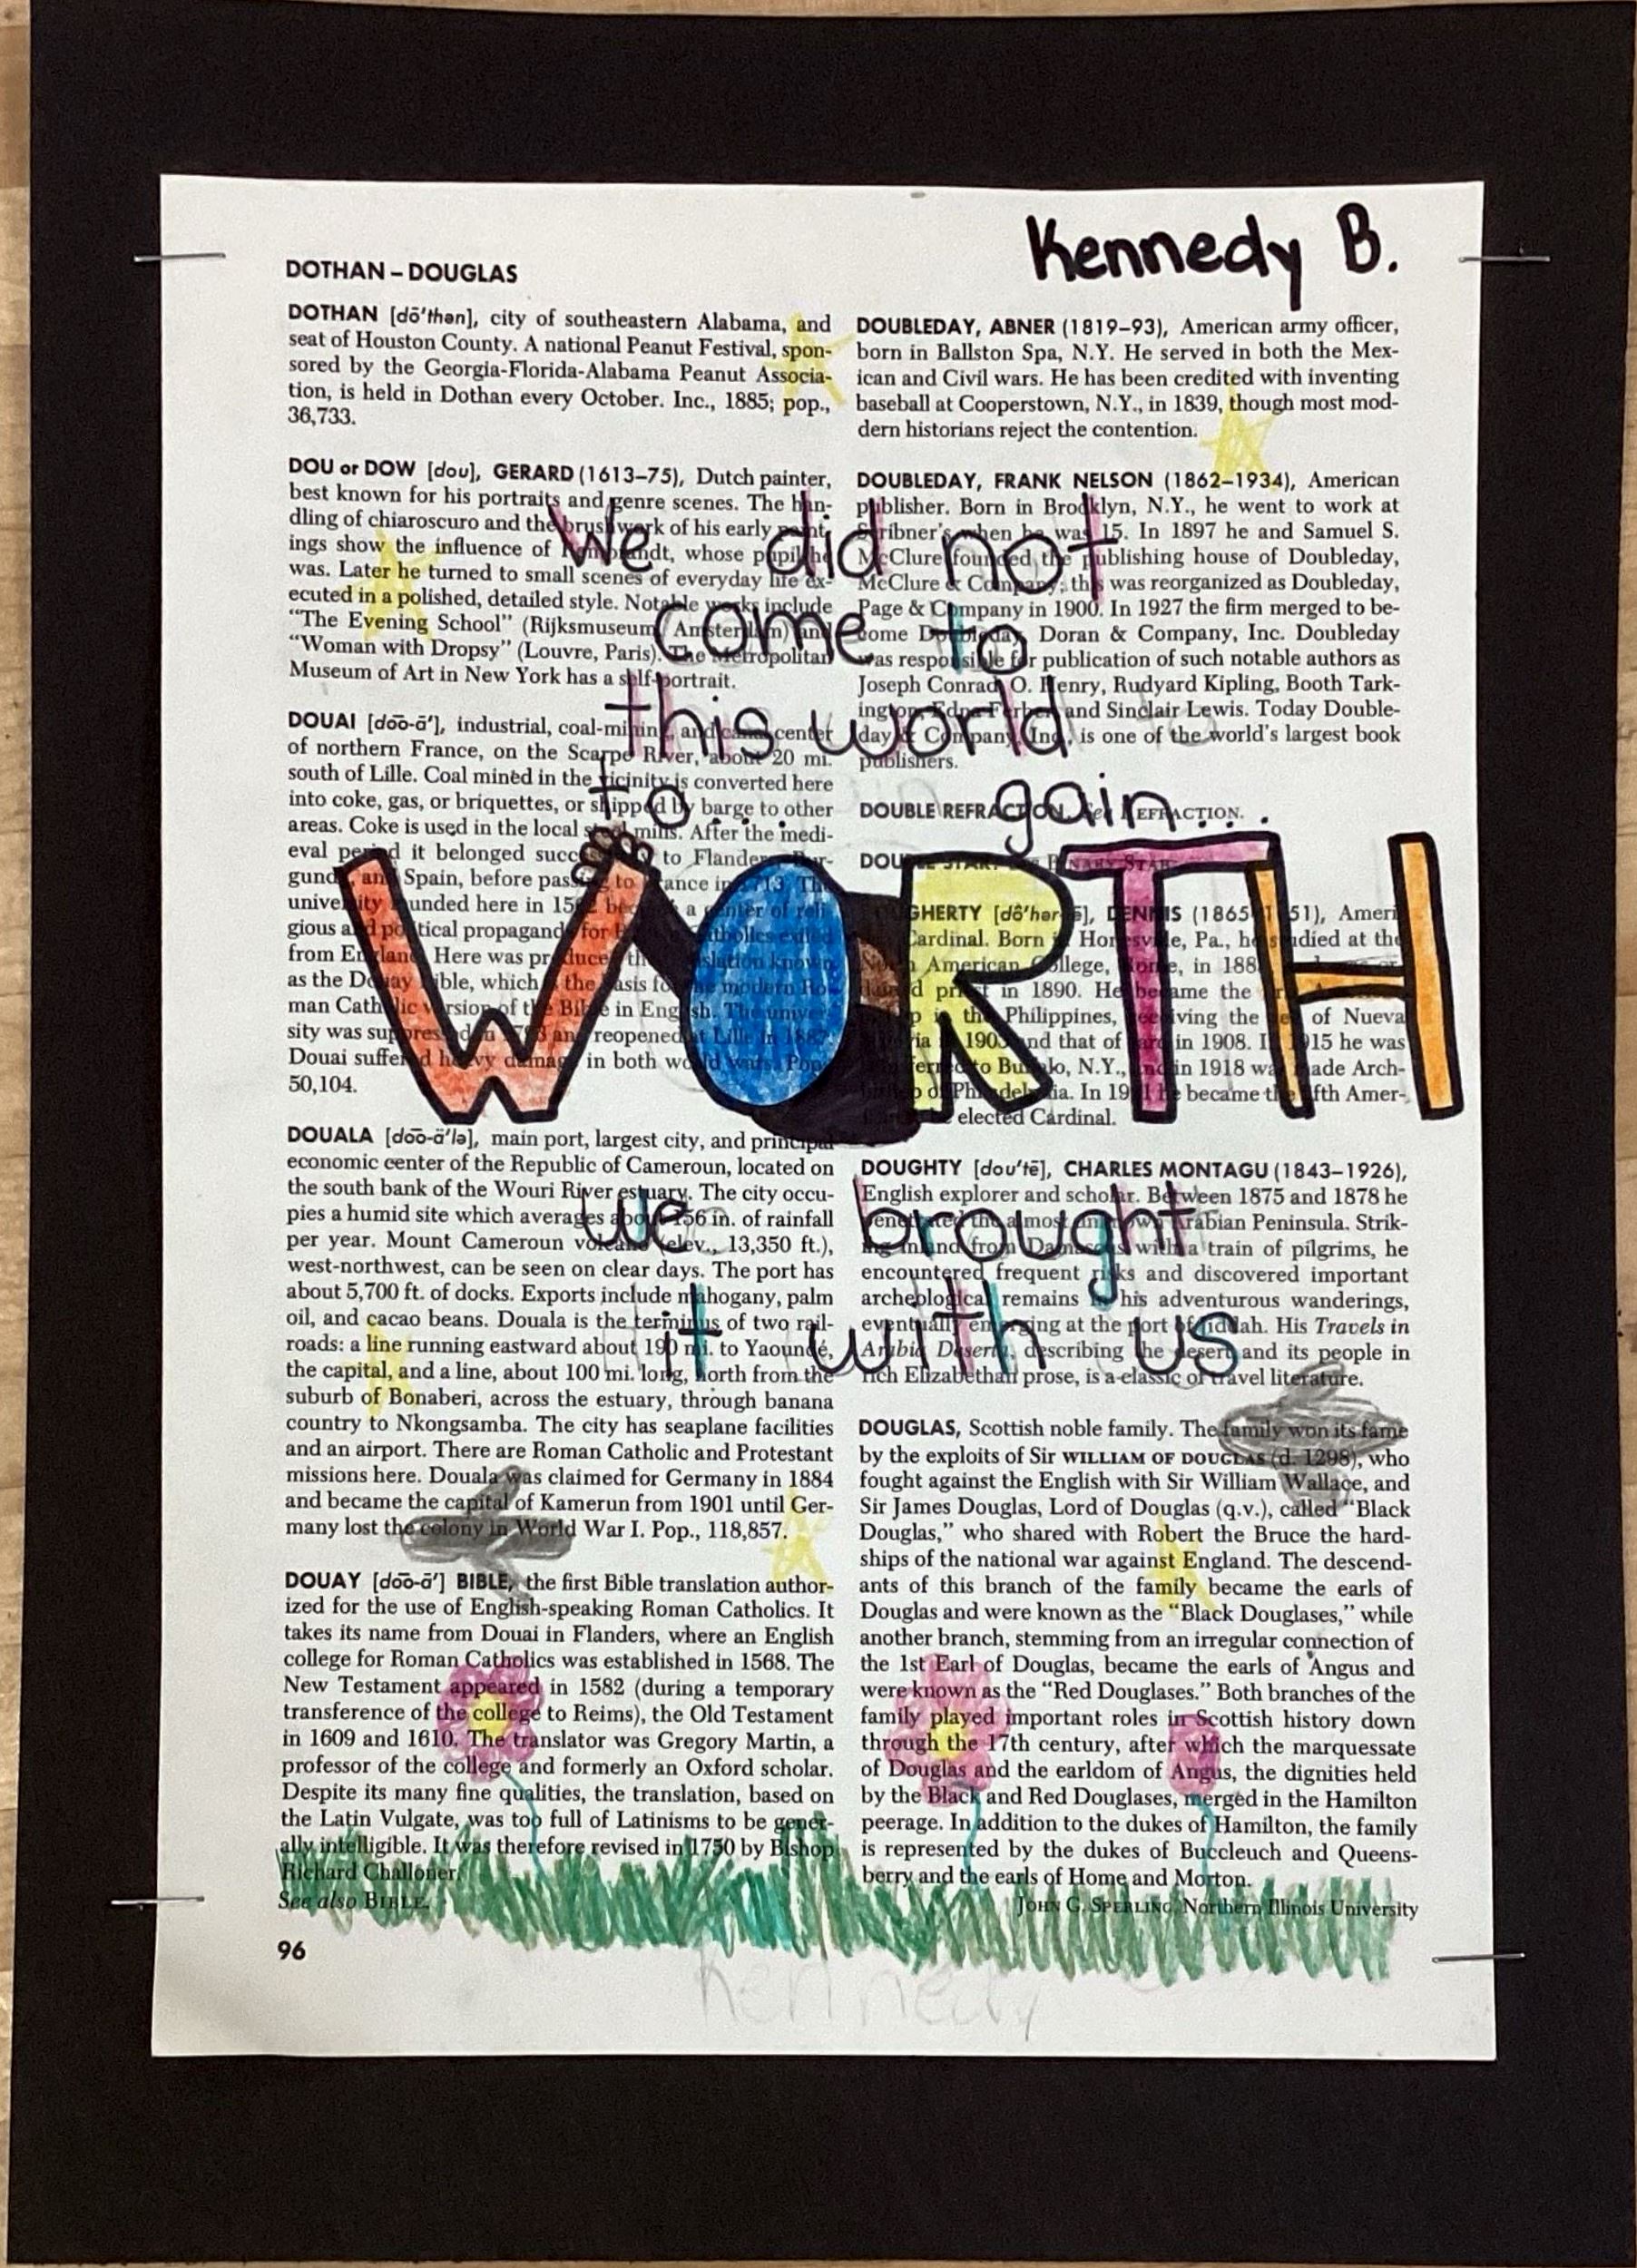 Kennedy B.
DOTHAN – DOUGLAS
DOTHAN [dō′thən], city of southeastern Alabama, and
seat of Houston County. A national Peanut Festival, spon-
sored by the Georgia-Florida-Alabama Peanut Associa-
tion, is held in Dothan every October. Inc., 1885; pop.,
36,733.
DOU or DOW [dou], GERARD (1613–75), Dutch painter,
best known for his portraits and genre scenes. The han-
dling of chiaroscuro and the brushwork of his early paint-
ings show the influence of Rembrandt, whose pupil he
was. Later he turned to small scenes of everyday life ex-
ecuted in a polished, detailed style. Notable works include
“The Evening School” (Rijksmuseum, Amsterdam) and
“Woman with Dropsy” (Louvre, Paris). The Metropolitan
Museum of Art in New York has a self-portrait.
DOUAI [do͞o-ā′], industrial, coal-mining, and canal center
of northern France, on the Scarpe River, about 20 mi.
south of Lille. Coal mined in the vicinity is converted here
into coke, gas, or briquettes, or shipped by barge to other
areas. Coke is used in the local steel mills. After the medi-
eval period it belonged to Flanders,
and Spain, before passing to France in 1713. The
university founded here in 1562 became a center of reli-
gious and political propaganda for Catholics exiled
from England. Here was produced the translation known
as the Douay Bible, which is the basis for the modern Ro-
man Catholic version of the Bible in English. The univer-
sity was suppressed in 1793 and reopened at Lille in 1887.
Douai suffered heavy damage in both world wars. Pop.,
50,104.
DOUALA [do͞o-ä′lə], main port, largest city, and principal
economic center of the Republic of Cameroun, located on
the south bank of the Wouri River estuary. The city occu-
pies a humid site which averages about 156 in. of rainfall
per year. Mount Cameroun volcano (elev., 13,350 ft.),
west-northwest, can be seen on clear days. The port has
about 5,700 ft. of docks. Exports include mahogany, palm
oil, and cacao beans. Douala is the terminus of two rail-
roads: a line running eastward about 190 mi. to Yaoundé,
the capital, and a line, about 100 mi. long, north from the
suburb of Bonaberi, across the estuary, through banana
country to Nkongsamba. The city has seaplane facilities
and an airport. There are Roman Catholic and Protestant
missions here. Douala was claimed for Germany in 1884
and became the capital of Kamerun from 1901 until Ger-
many lost the colony in World War I. Pop., 118,857.
DOUAY [do͞o-ā′] BIBLE, the first Bible translation author-
ized for the use of English-speaking Roman Catholics. It
takes its name from Douai in Flanders, where an English
college for Roman Catholics was established in 1568. The
New Testament appeared in 1582 (during a temporary
transference of the college to Reims), the Old Testament
in 1609 and 1610. The translator was Gregory Martin, a
professor of the college and formerly an Oxford scholar.
Despite its many fine qualities, the translation, based on
the Latin Vulgate, was too full of Latinisms to be gener-
ally intelligible. It was therefore revised in 1750 by Bishop
Richard Challoner.
See also BIBLE.
96
DOUBLEDAY, ABNER (1819–93), American army officer,
born in Ballston Spa, N.Y. He served in both the Mex-
ican and Civil wars. He has been credited with inventing
baseball at Cooperstown, N.Y., in 1839, though most mod-
dern historians reject the contention.
DOUBLEDAY, FRANK NELSON (1862–1934), American
publisher. Born in Brooklyn, N.Y., he went to work at
Scribner's when he was 15. In 1897 he and Samuel S.
McClure founded the publishing house of Doubleday,
McClure & Company; this was reorganized as Doubleday,
Page & Company in 1900. In 1927 the firm merged to be-
come Doubleday, Doran & Company, Inc. Doubleday
was responsible for publication of such notable authors as
Joseph Conrad, O. Henry, Rudyard Kipling, Booth Tark-
ington, Edna Ferber, and Sinclair Lewis. Today Double-
day & Company, Inc., is one of the world's largest book
publishers.
DOUBLE REFRACTION. See REFRACTION.
DOUBLE STAR. See BINARY STAR.
DOUGHERTY [dô′hər-tē], DENNIS (1865–1951), Ameri-
Cardinal. Born in Honesville, Pa., he studied at the
North American College, Rome, in 188
priest in 1890. He became the
in the Philippines, receiving the see of Nueva
in 1903 and that of Jaro in 1908. In 1915 he was
to Buffalo, N.Y., and in 1918 was made Arch-
bishop of Philadelphia. In 1921 he became the fifth Amer-
elected Cardinal.
DOUGHTY [dou′tē], CHARLES MONTAGU (1843–1926),
English explorer and scholar. Between 1875 and 1878 he
penetrated the almost unknown Arabian Peninsula. Strik-
ing inland from Damascus with a train of pilgrims, he
encountered frequent risks and discovered important
archeological remains in his adventurous wanderings,
eventually emerging at the port of Jiddah. His Travels in
Arabia Deserta, describing the desert and its people in
rich Elizabethan prose, is a classic of travel literature.
DOUGLAS, Scottish noble family. The family won its fame
by the exploits of Sir WILLIAM OF DOUGLAS (d. 1298), who
fought against the English with Sir William Wallace, and
Sir James Douglas, Lord of Douglas (q.v.), called “Black
Douglas,” who shared with Robert the Bruce the hard-
ships of the national war against England. The descend-
ants of this branch of the family became the earls of
Douglas and were known as the “Black Douglases,” while
another branch, stemming from an irregular connection of
the 1st Earl of Douglas, became the earls of Angus and
were known as the “Red Douglases.” Both branches of the
family played important roles in Scottish history down
through the 17th century, after which the marquessate
of Douglas and the earldom of Angus, the dignities held
by the Black and Red Douglases, merged in the Hamilton
peerage. In addition to the dukes of Hamilton, the family
is represented by the dukes of Buccleuch and Queens-
berry and the earls of Home and Morton.
JOHN G. SPERLING, Northern Illinois University
We did not
come to
this world
to gain....
WORTH
we brought
it with us
Kennedy